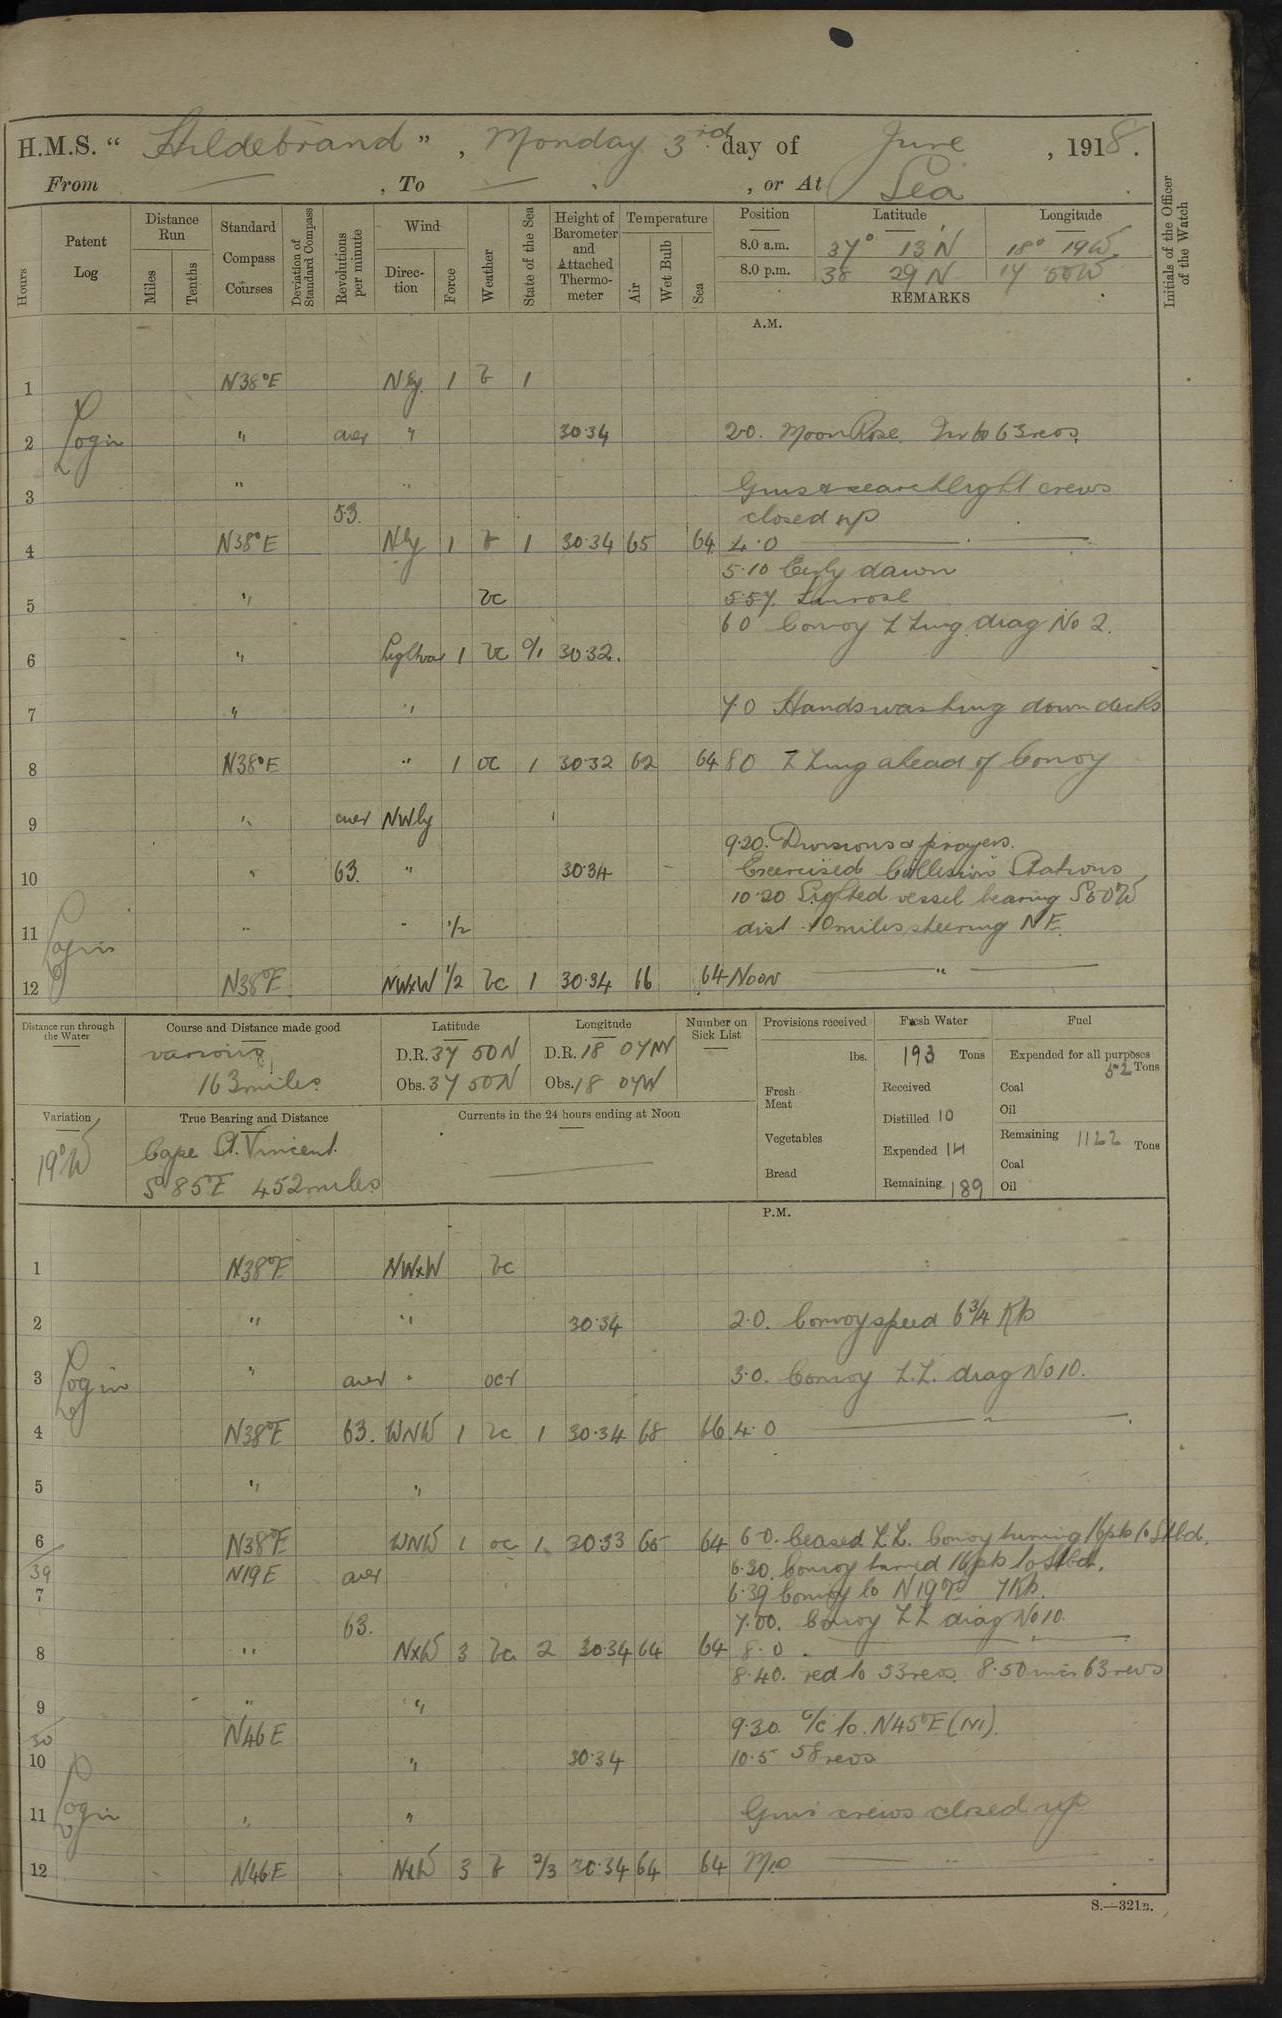 H.M.S. " Hildebrand " , Monday 3rd day of June , 1918.
From — , To — , or At Sea
Hours
Patent Log
Distance Run
Miles
Tenths
Standard Compass Courses
Deviation of Standard Compass
Revolutions per minute
Wind
Direction
Force
Weather
State of the Sea
Height of Barometer and Attached Thermometer
Temperature
Air
Wet Bulb
Sea
Position Latitude Longitude
8.0 a.m. 37° 13'N 18° 19W
8.0 p.m. 38 29N 17 50W
REMARKS
Initials of the Officer of the Watch
A.M.
1 N38°E Nly. 1 b 1
2 Log in " aver " 30.34 2.0. Moon Rose. Inc to 63 revs.
3 " " Guns & searchlight crews
53. closed up
4 N38°E Nly 1 b 1 30.34 65 64 4.0 —
5.10 Early dawn
5 " bc 5.57. Sunrose
6.0 Convoy Z Zing. drag No 2.
6 " Lightvar 1 bc 0/1 30.32.
7 " " 7.0 Hands washing down decks
8 N38°E " 1 bc 1 30.32 62 64 8.0 Z Zing ahead of Convoy
9 " aver NWly
9.20. Divisions & prayers.
10 " 63. " 30.34 Exercised Collision Stations
10.20 Sighted vessel bearing S60W
11 Log in " " 1/2 dist 10 miles, steering NE.
12 N38°E NWxW 1/2 bc 1 30.34 66 64 Noon — " —
Distance run through the Water
Course and Distance made good
various
163 miles
Latitude
D.R. 37 50N
Obs. 37 50N
Longitude
D.R. 18 07W
Obs. 18 07W
Number on Sick List
Provisions received
lbs.
Fresh Meat
Vegetables
Bread
Fresh Water
193 Tons
Received
Distilled 10
Expended 14
Remaining 189
Fuel
Expended for all purposes
52 Tons
Coal
Oil
Remaining 1122 Tons
Coal
Oil
Variation
19°W
True Bearing and Distance
Cape St. Vincent.
S 85°E 452 miles
Currents in the 24 hours ending at Noon
P.M.
1 N38°E NWxW bc
2 " " 30.34 2.0. Convoy speed 6¾ Kts
3 Log in " aver " ocr 3.0. Convoy Z.Z. drag No 10.
4 N38°E 63. WNW 1 bc 1 30.34 68 66 4.0 — " —
5 " "
6 N38°E WNW 1 oc 1 30.33 65 64 6.0. Ceased ZZ. Convoy turning 16pts to Stbd.
39 N19E aver 6.30. Convoy turned 16pts to Stbd.
7 6.39 Convoy to N19E 7 Kts.
63. 7.00. Convoy ZZ drag No 10.
8 " NxW 3 bc 2 30.34 64 64 8.0 — " —
8.40. red to 53 revs. 8.50 inc 63 revs
9 " "
30 N46E 9.30. a/c to N45°E (N1).
10 " 30.34 10.5 58 revs
11 Log in " " Guns crews closed up
12 N46E NxW 3 b 2/3 30.34 64 64 Mid — " —
S.—321B.